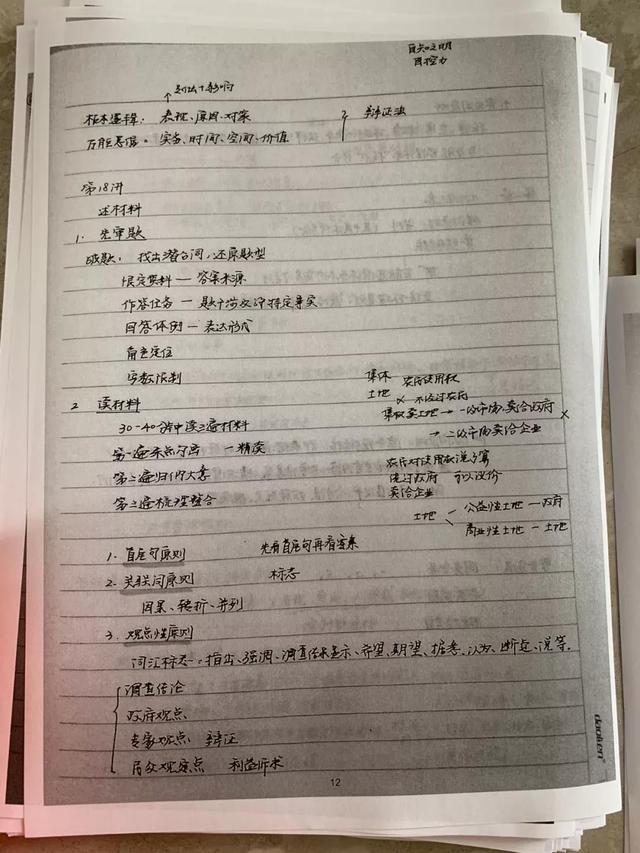 自知之明
自控力
↑ 划法+影响
标本逻辑: 表现、原因、对策
辩证法
万能思维: 实务、时间、空间、价值
第18讲
述材料
1. 先审题
破题: 找出潜台词,还原题型
限定资料 — 答案来源
作答任务 — 题中涉及的特定事实
回答体例 — 表达形式
角色定位
字数限制
2 读材料
30-40分钟读三遍材料
第一遍 — 精读
第二遍归纳大意
第三遍梳理整合
集体 农民使用权
土地 × 不经过农府
集体卖土地 → 一级市场,卖给政府 ×
→ 二级市场卖给企业
农民对使用权说了算
绕过政府 可以议价
卖给企业
土地 < 公益性土地 — 政府
商业性土地 — 土地
1. 首尾句原则 先看首尾句再看答案
2. 关联词原则 标志
因果、转折、并列
3. 观点性原则
词汇标志: 指出、强调、调查结果显示、希望、期望、据悉、认为、断定、说等.
调查结论
政府观点
专家观点 辩证
民众观点 利益诉求
daolien
12